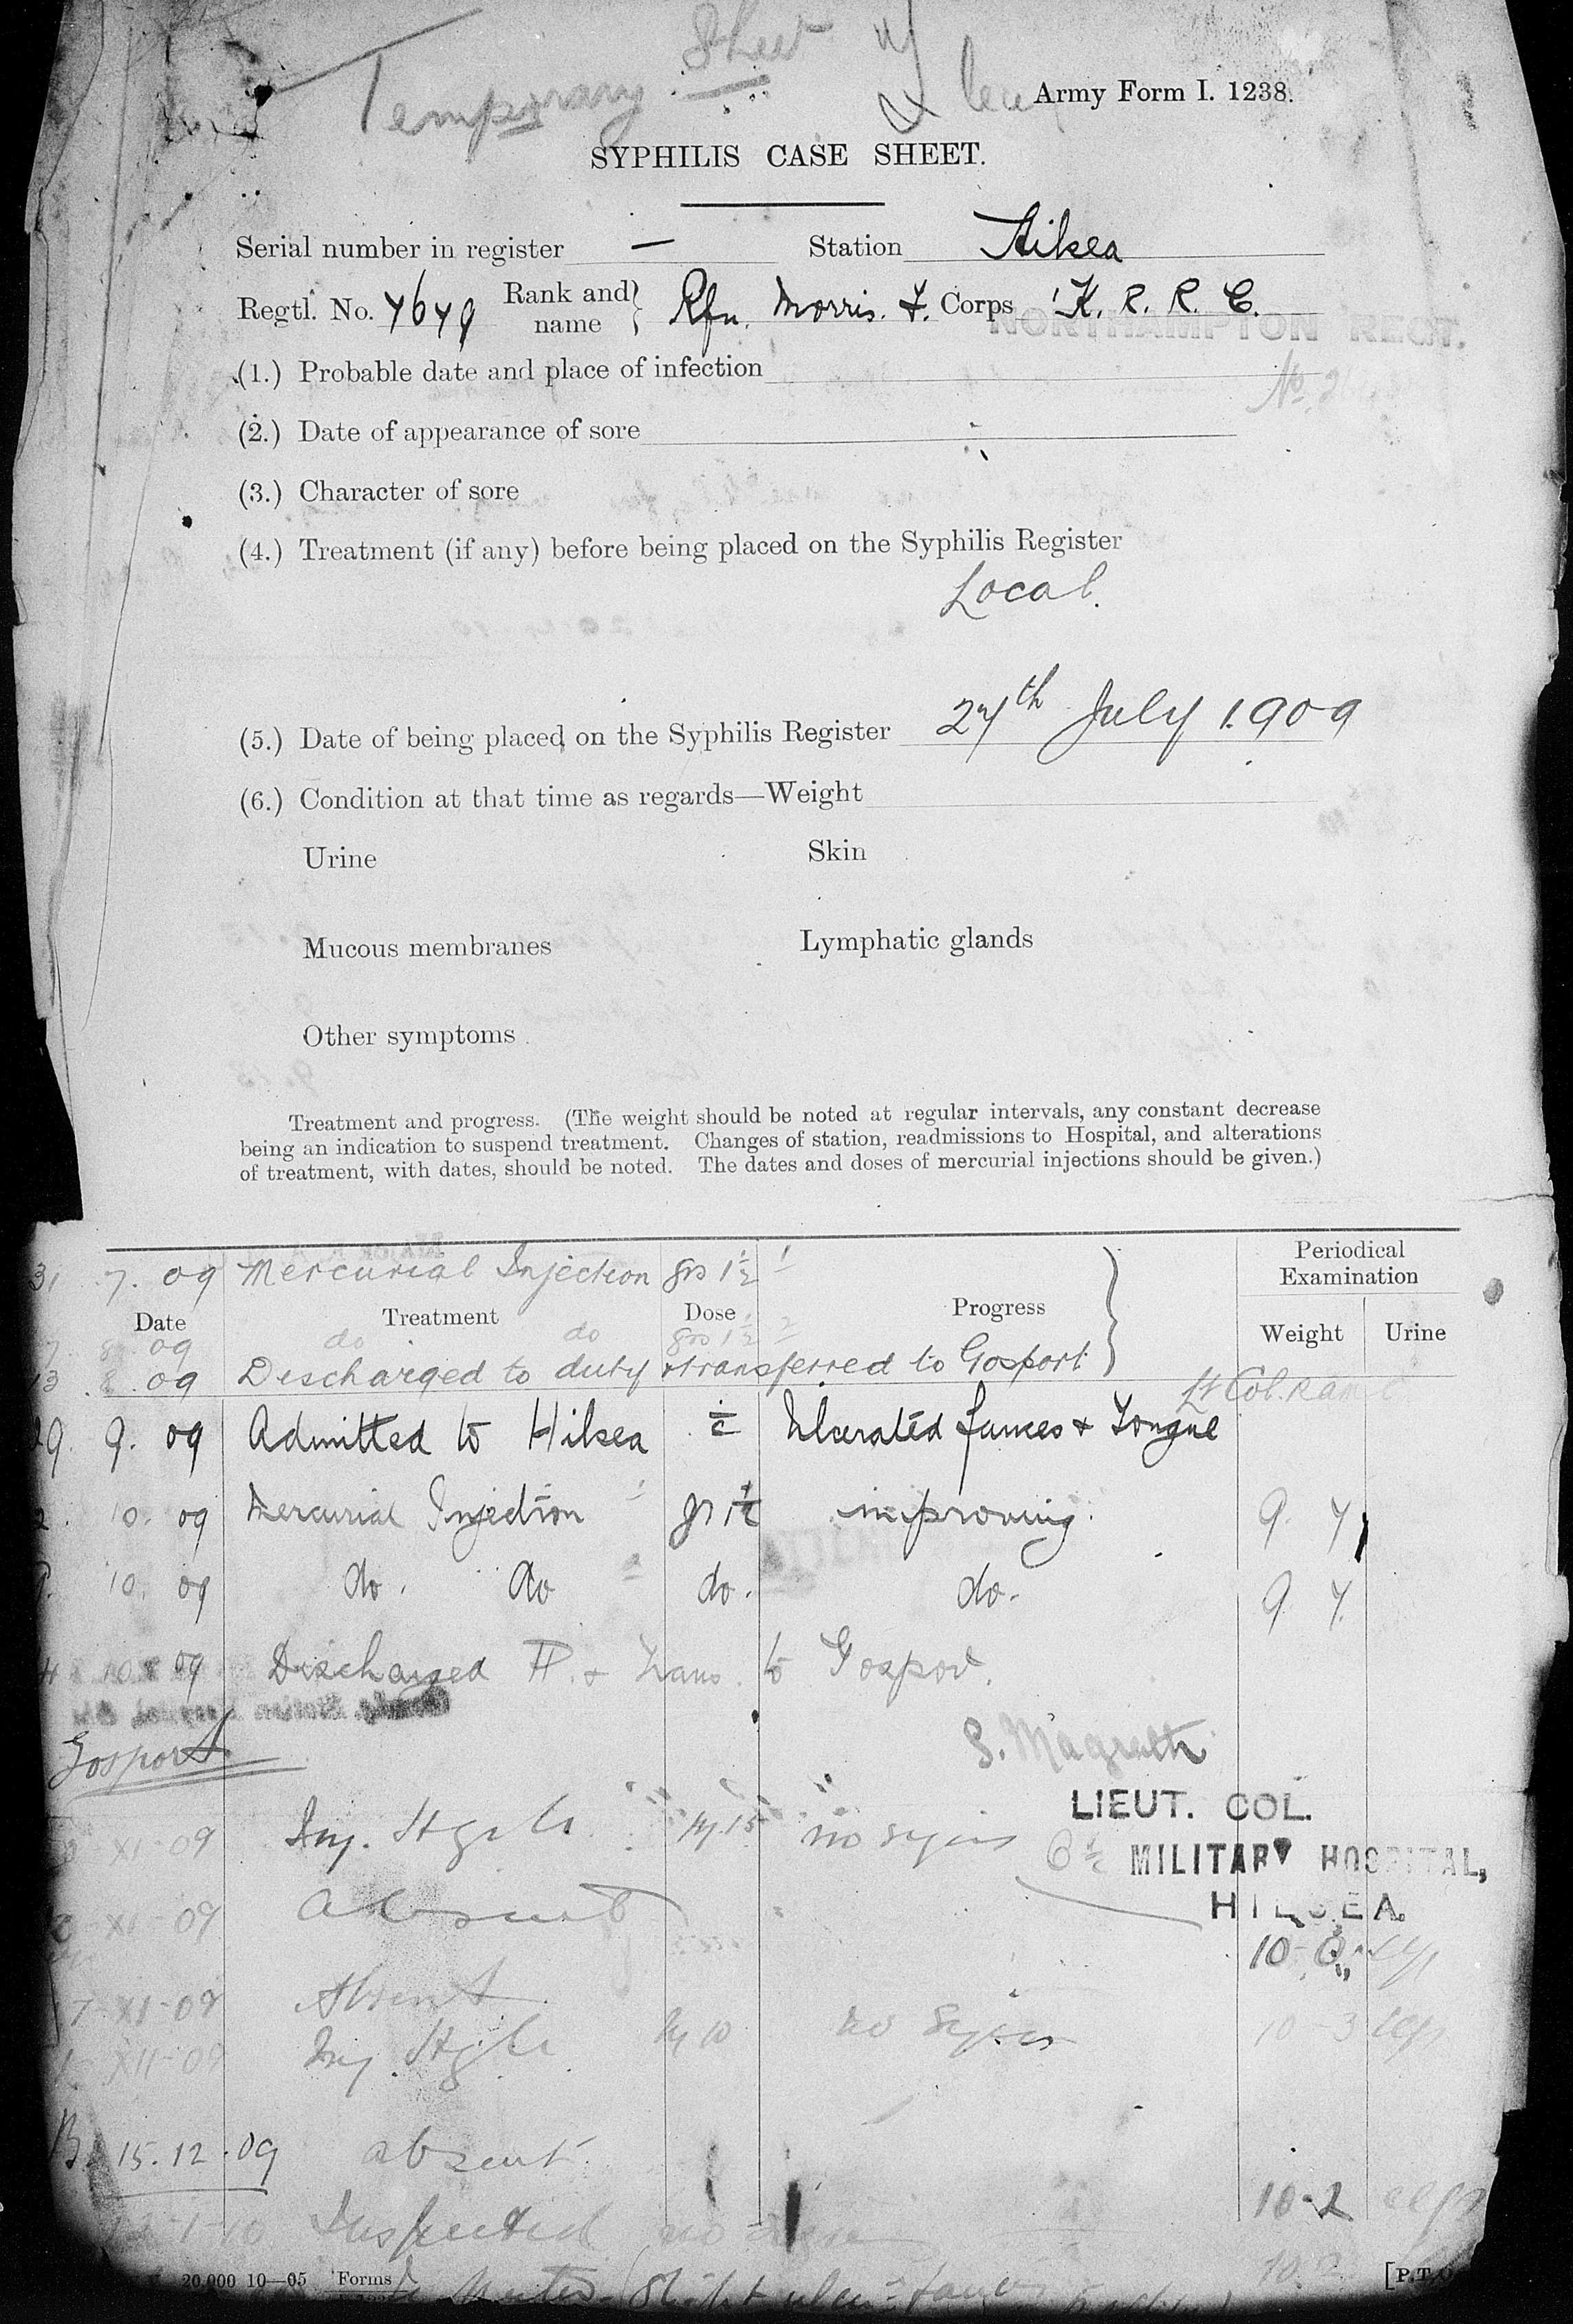 Temporary Sheet
Army Form I. 1238.
SYPHILIS CASE SHEET.
Serial number in register — Station Hilsea
Regtl. No. 7679 Rank and name } Rfn. Morris. F. Corps 1 K. R. R. C.
NORTHAMPTON REGT.
(1.) Probable date and place of infection
No.
(2.) Date of appearance of sore
(3.) Character of sore
(4.) Treatment (if any) before being placed on the Syphilis Register
Local.
(5.) Date of being placed on the Syphilis Register 27th July 1909
(6.) Condition at that time as regards—Weight
Urine Skin
Mucous membranes Lymphatic glands
Other symptoms
Treatment and progress. (The weight should be noted at regular intervals, any constant decrease
being an indication to suspend treatment. Changes of station, readmissions to Hospital, and alterations
of treatment, with dates, should be noted. The dates and doses of mercurial injections should be given.)
Periodical Examination
31 7. 09 Mercurial Injection grs 1½ 1
Date Treatment Dose Progress Weight Urine
7. 8. 09 do do grs 1½ 2
13. 8. 09 Discharged to duty & transferred to Gosport
Lt Col. RAMC
29. 9. 09 Admitted to Hilsea c̄ Ulcerated fauces & Tongue
2. 10. 09 Mercurial Injection 1 gr 1½ improving. 9. 7
9. 10. 09 do. do 2 do. do. 9 7.
10. 09 Discharged H. & Trans. to Gosport.
Gosport
S. Magrath
LIEUT. COL.
MILITARY HOSPITAL,
HILSEA.
XI-09 Inj. ♏ 15 no signs
XI-09 Absent
10-0
7-XI-09 Absent
XII-09 Inj. ♏ 10 no signs 10-3
15. 12. 09 absent
10-2
1-10 Inspected no sign
20,000 10—05 Forms
[P.T.O.
Slight ulcer